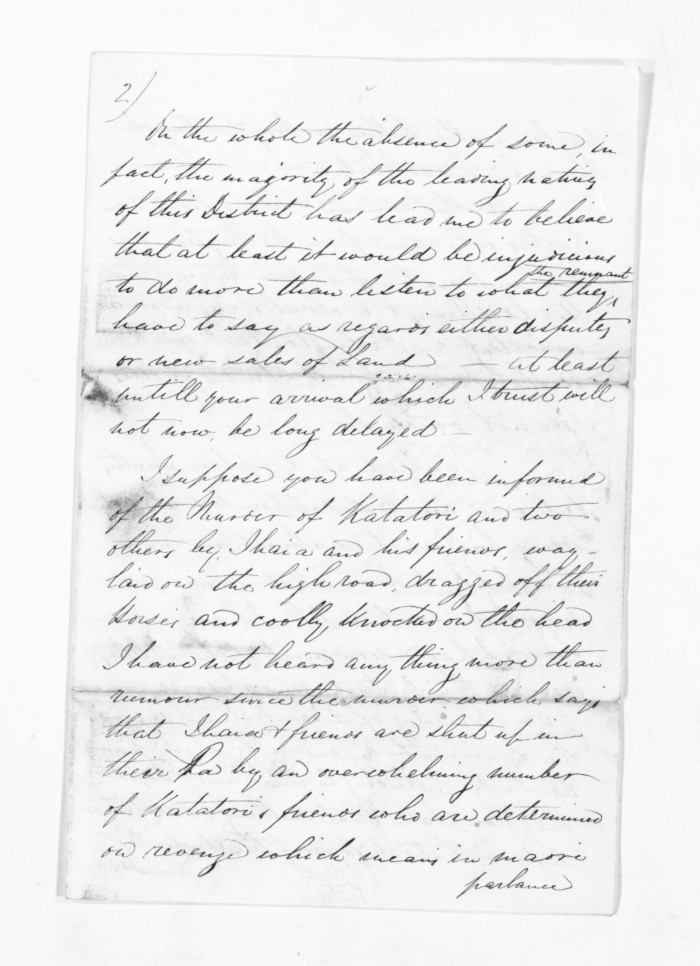 2)
On the whole the absence of some, in
fact, the majority of the leading natives
of this District has lead me to believe
that at least it would be injudicious
the remnant
to do more than listen to what they,
have to say as regards either disputes
or new sales of Land — at least
untill your arrival which I trust will
not now be long delayed —
I suppose you have been informed
of the Murder of Katatori and two
others by Ihaia and his friends, way-
laid on the high road, dragged off their
Horses and coolly Knocked on the head
I have not heard any thing more than
rumour since the murder which says
that Ihaia & friends are shut up in
their Pa by an overwhelming number
of Katatoris friends who are determined
on revenge which means in maori
parlance